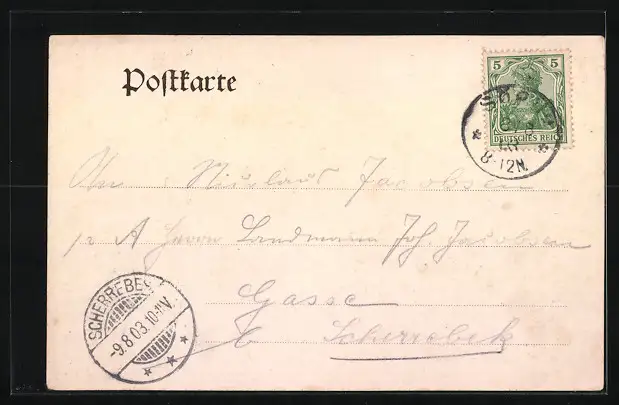 Postkarte
5 5
DEUTSCHES REICH
8-12N.
An Nicolaus Jacobsen
Herrn Landmann Joh. Jacobsen
Gasse
Scherrebek
SCHERREBEK
-9.8.03.10-11V.